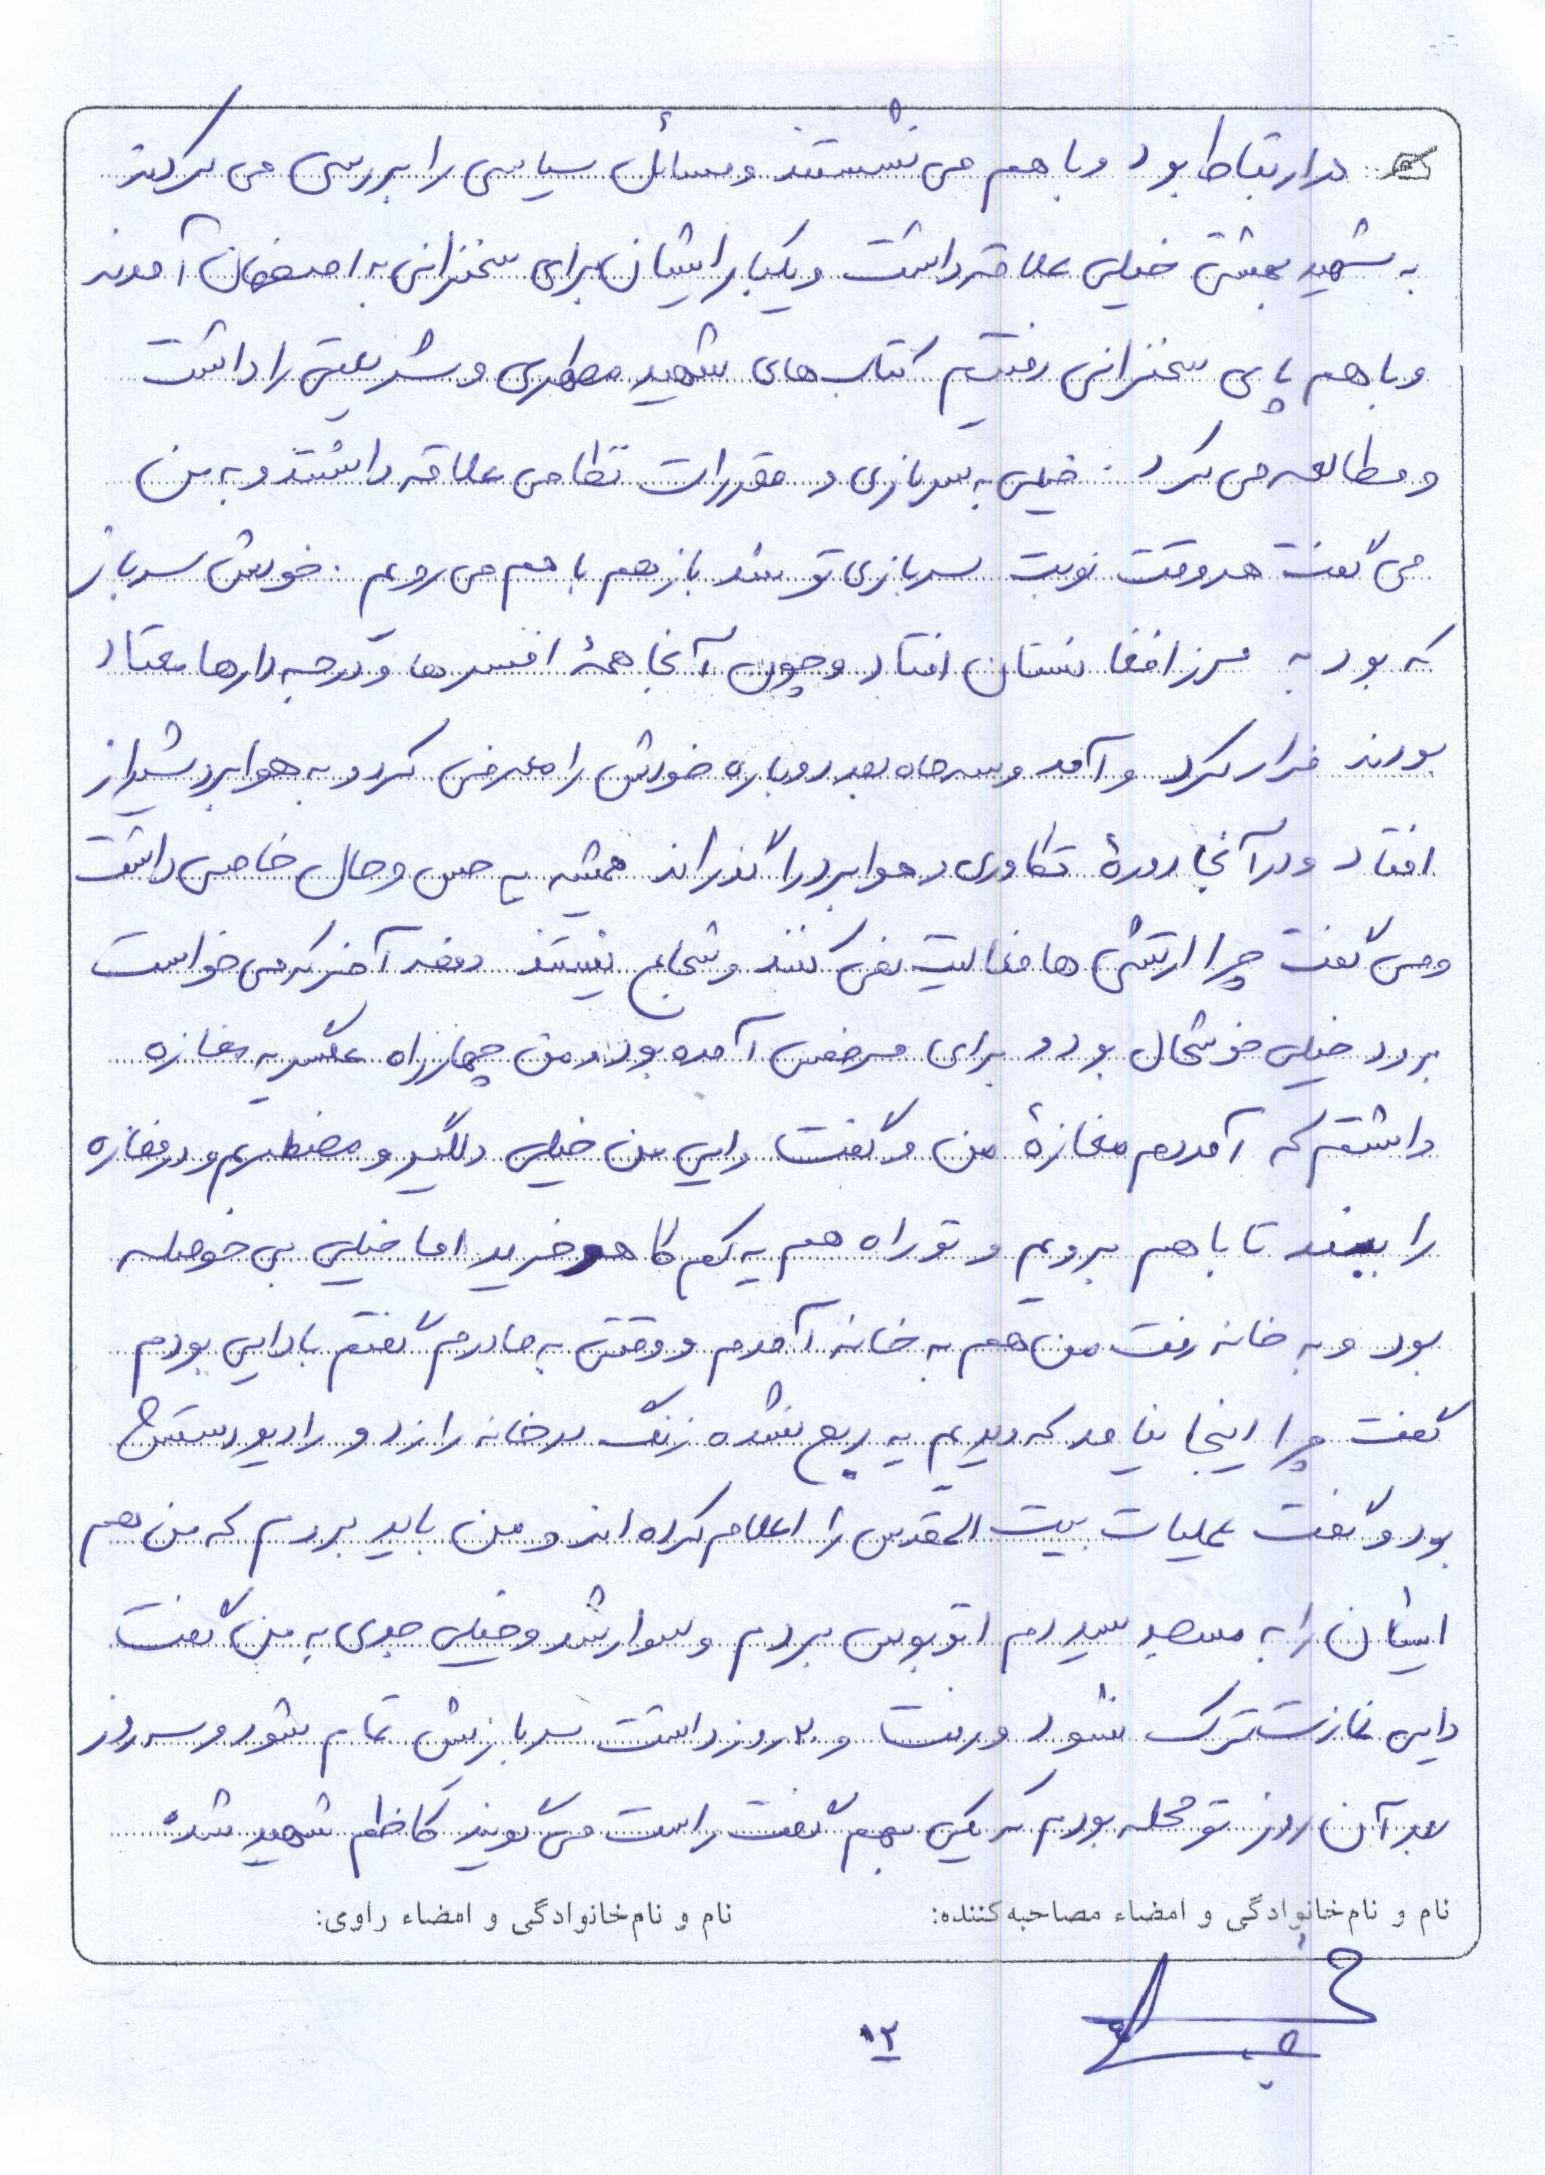 در ارتباط بود و با هم می نشستند و مسائل سیاسی را بررسی می کردند
به شهید بهشتی خیلی علاقه داشت و یکبار ایشان برای سخنرانی به اصفهان آمدند
و با هم پای سخنرانی رفتیم کتاب های شهید مطهری و شریعتی را داشت
و مطالعه می کرد . خیلی به سربازی و مقررات نظامی علاقه داشتند و به من
می گفت هر وقت نوبت سربازی تو شد باز هم با هم می رویم . خودش سرباز
که بود به مرز افغانستان افتاد و چون آنجا همۀ افسرها و درجه دارها معتاد
بودند فرار کرد و آمد و سه ماه بعد دوباره خودش را معرفی کرد و به هوابرد شیراز
افتاد و در آنجا دورۀ تکاوری و هوابرد را گذراند همیشه یه حس و حال خاصی داشت
و می گفت چرا ارتشی ها فعالیت نمی کنند و شجاع نیستند دفعه آخر که می خواست
برود خیلی خوشحال بود و برای مرخصی آمده بود و من چهارراه عسگریه مغازه
داشتم که آمد دم مغازۀ من و گفت دایی من خیلی دلگیر و مضطربم و در مغازه
را ببند تا با هم برویم و تو راه هم یه کم کاهو خرید اما خیلی بی حوصله
بود و به خانه رفت من هم به خانه آمدم و وقتی به مادرم گفتم با دایی بودم
گفت چرا اینجا نیامد که دیدیم یه ربع نشده زنگ در خانه را زد و رادیو دستش
بود و گفت عملیات بیت المقدس را اعلام کرده اند و من باید بروم که من هم
ایشان را به مسجد سید دم اتوبوس بردم و سوار شد و خیلی جدی به من گفت
دایی نمازت ترک نشود و رفت و ۲۰ روز داشت سربازیش تمام شود و سه روز
بعد آن روز تو محله بودم که یکی بهم گفت راست می گویند کاظم شهید شده
نام و نام خانوادگی و امضاء مصاحبه کننده: نام و نام خانوادگی و امضاء راوی:
۱۲